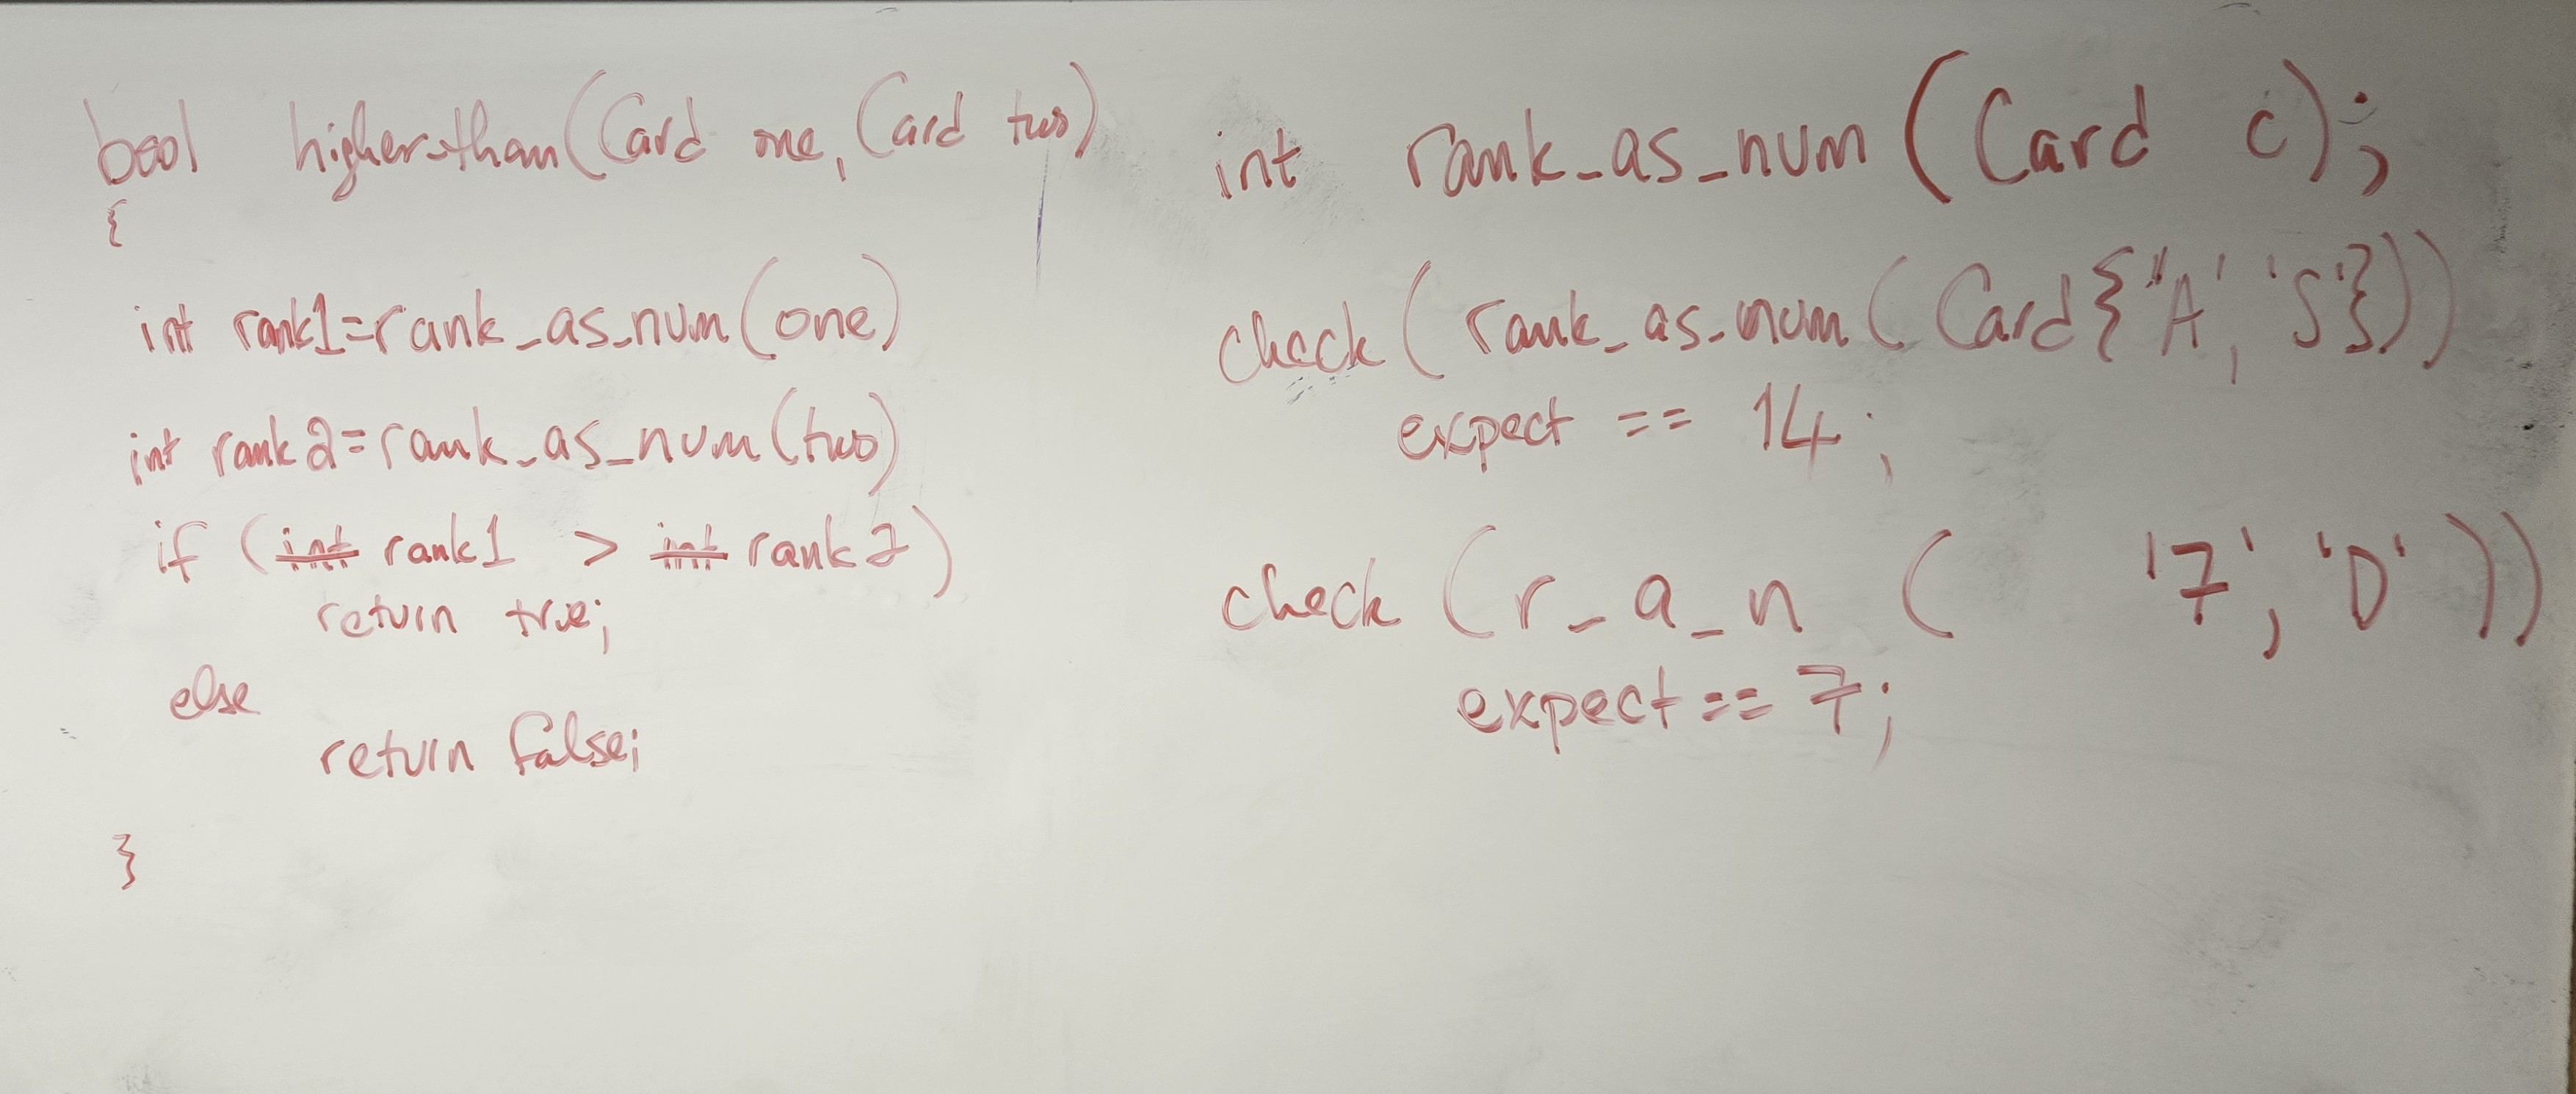 bool higher_than(Card one, Card two)
{
int rank1=rank_as_num(one)
int rank2=rank_as_num(two)
if (int rank1 > int rank2)
return true;
else
return false;
}
int rank_as_num (Card c);
check (rank_as_num (Card{'A', 'S'}))
expect == 14;
check (r_a_n ( '7', 'D' ))
expect == 7;